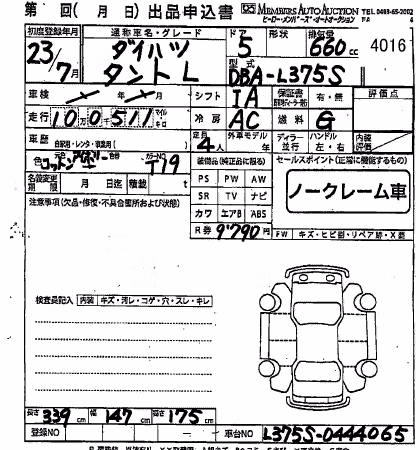 第 回( 月 日) 出品申込書
MEMBERS AUTO AUCTION TEL 0489-65-2002
ヒーロー・メンバーズ・オートオークション FA
初度登録年月 通称車名・グレード ドア 形状 排気量
23/7月 ダイハツ タントL 5 660cc 4016
DBA-L375S
車検 年 月 シフト IA 保証書 有・無 評価点
走行 100511 マイル キロ 冷房 AC 燃料 G
車歴 自家用・レンタ・事業用( ) 定員 4人 外車モデル 年 ディーラー 並行 ハンドル 左・右 内装評価
色 コットンアイボリー カラーNO T19
装備品(純正品に限る) セールスポイント(正常に機能するもの)
名義変更期限 月 日迄 積載 t PS PW AW
ノークレーム車
注意事項(欠品・修復・不具合箇所および状態) SR TV ナビ
カワ エアB ABS
R券 9790円 FW キズ・ヒビ割・リペア跡・X割
検査員記入 内装 キズ・汚レ・コゲ・穴・スレ・キレ
長さ 339cm 幅 147cm 高さ 175cm
登録NO 車台NO L375S-0444065